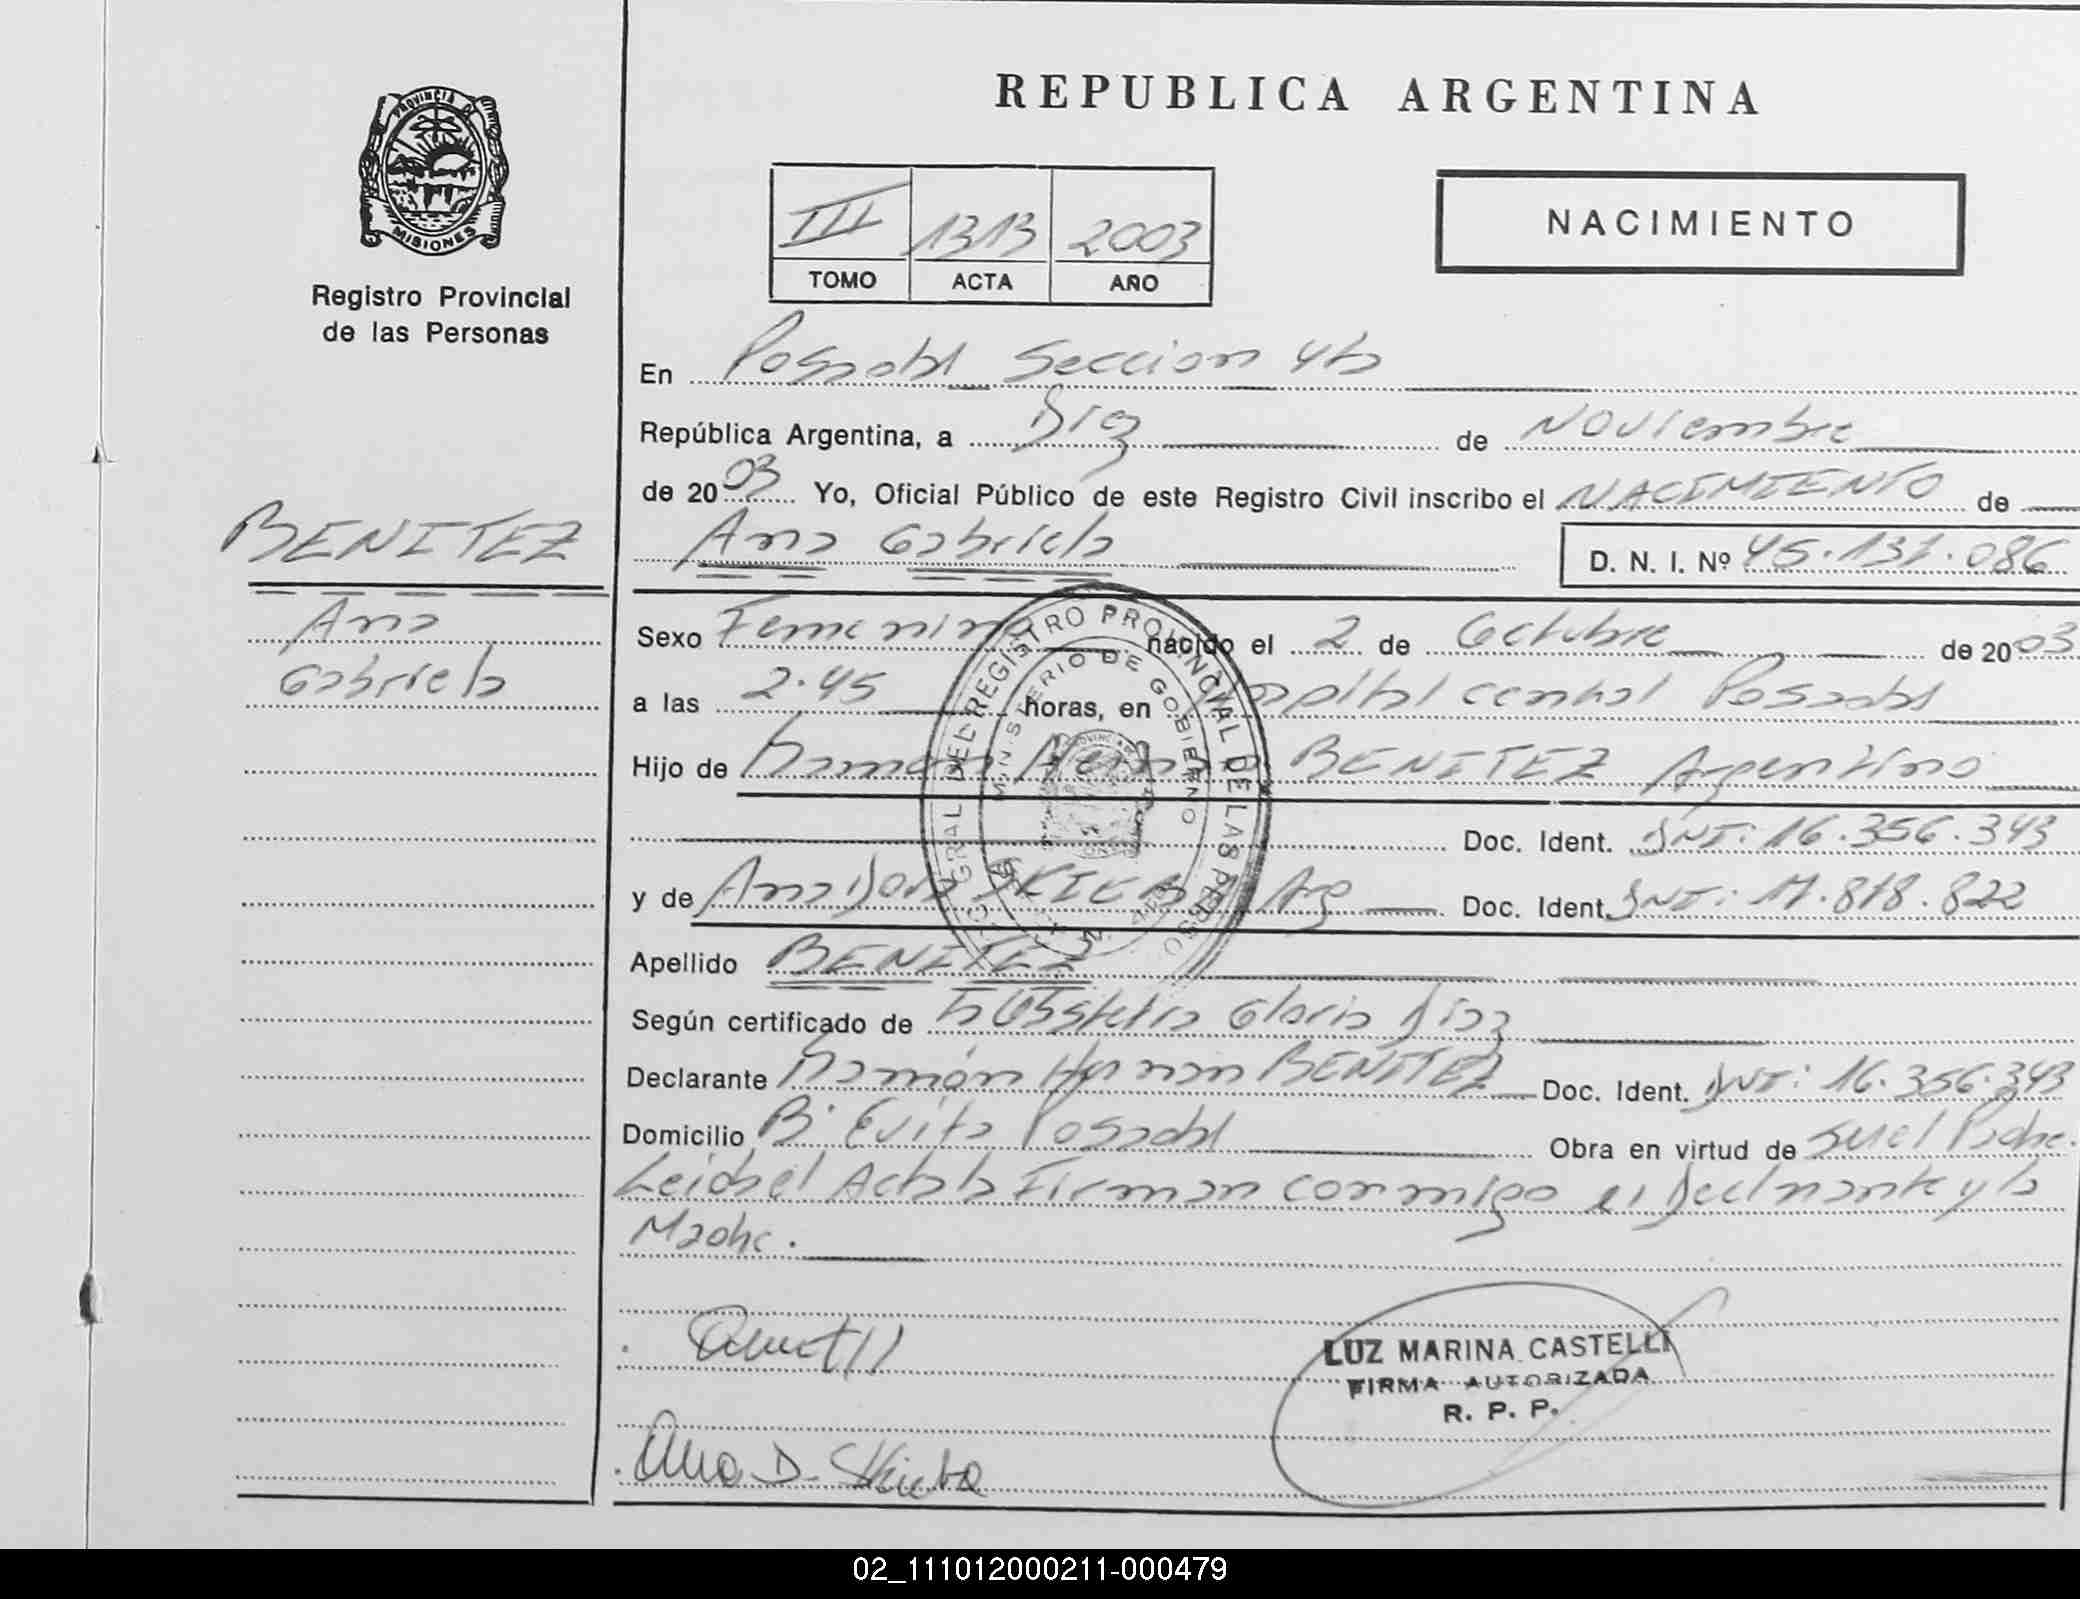 PROVINCIA DE
MISIONES
Registro Provincial
de las Personas
BENITEZ
Ana
Gabriela
REPUBLICA ARGENTINA
III 1313 2003
TOMO ACTA AÑO
NACIMIENTO
En Posadas Seccion 4ta
República Argentina, a Diez de Noviembre
de 2003 Yo, Oficial Público de este Registro Civil inscribo el NACIMIENTO de
Ana Gabriela D. N. I. Nº 45.137.086
Sexo Femenino nacido el 2 de Octubre de 2003
a las 2.45 horas, en Hospital central Posadas
Hijo de Ramón Hernan BENITEZ Argentino
Doc. Ident. DNI: 16.356.343
y de Ana Dora SKIEBA Arg Doc. Ident. DNI: 17.818.822
Apellido BENITEZ
Según certificado de la Obstetra Gloria Diaz
Declarante Ramón Hernan BENITEZ Doc. Ident. DNI: 16.356.343
Domicilio Bº Evita Posadas Obra en virtud de Ser el Padre.
Leida el Acta la Firman conmigo el Declarante y la
Madre.
LUZ MARINA CASTELLI
FIRMA AUTORIZADA
R. P. P.
Ana D. Skieba
REGISTRO PROVINCIAL DE LAS PERSO
MINISTERIO DE GOBIERNO
02_111012000211-000479